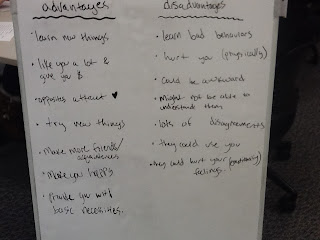 advantages
• learn new things
• like you a lot &
give you $
• opposites attract ♥
• try new things
• make more friends/
acquaintances
• make you happy
• provide you with
basic necessities.
disadvantages
• learn bad behaviors
• hurt you (physically)
• could be awkward
• Might not be able to
understand them
• lots of disagreements
• they could use you
• they could hurt your (emotionally)
feelings.